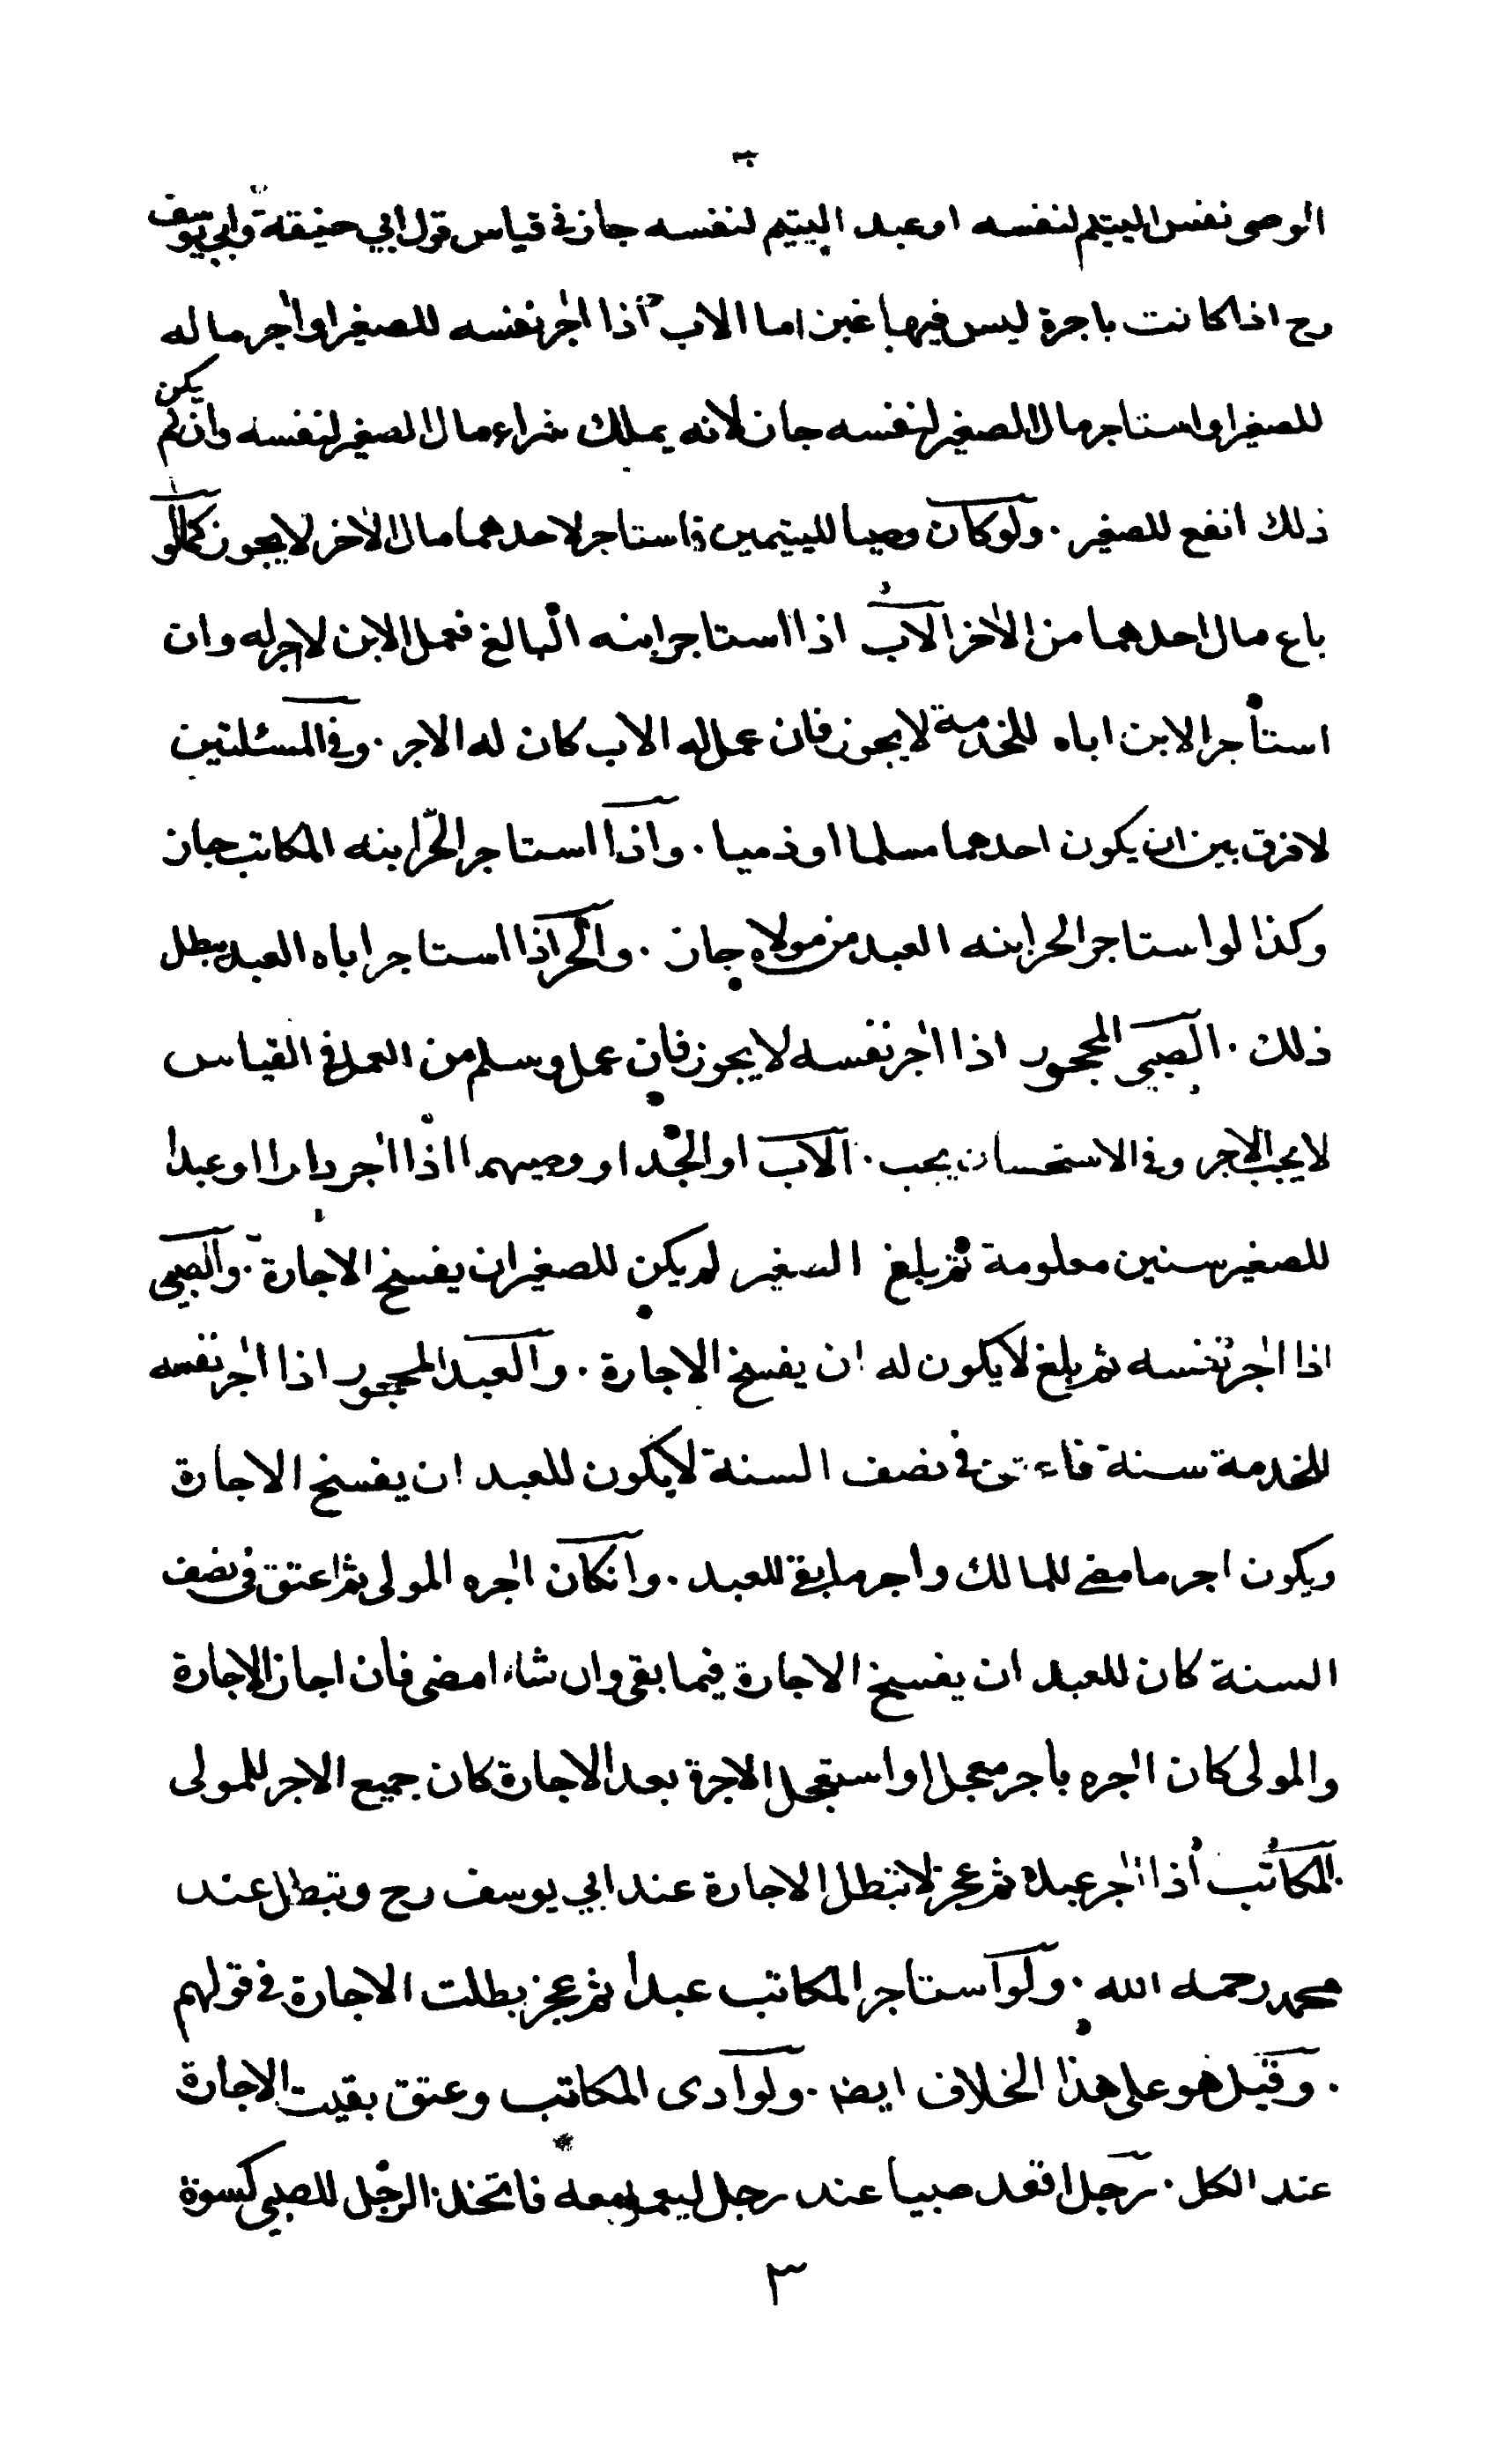 الوصى نفس اليتيم لنفسه او عبد اليتيم لنفسه جاز في قياس قول ابي حنيفة وابي يوسف
رح اذا كانت باجرة ليس فيها غبن اما الاب اذا اجر نفسه للصغير او اجر ماله
للصغير او استاجر مال الصغير لنفسه جاز لانه يملك شراء مال الصغير لنفسه وان لم يكن
ذلك انفع للصغير . ولو كان وصيا لليتيمين فاستاجر لاحدهما مال الاخر لا يجوز كما لو
باع مال احدهما من الاخر الاب اذا استاجر ابنه البالغ فعمل الابن لا اجر له وان
استأجر الابن اباه للخدمة لا يجوز فان عمل له الاب كان له الاجر . وفي المسئلتين
لا فرق بين ان يكون احدهما مسلما او ذميا . واذا استاجر الحرّ ابنه المكاتب جاز
وكذا لو استاجر الحر ابنه العبد من مولاه جاز . والحر اذا استاجر اباه العبد يبطل
ذلك . الصبي المحجور اذا اجر نفسه لا يجوز فان عمل وسلم من العمل في القياس
لا يجب الاجر وفي الاستحسان يجب . الاب او الجد او وصيهما اذا اجر دارا او عبدا
للصغير سنين معلومة ثم بلغ الصغير لم يكن للصغير ان يفسخ الاجارة . والصبي
اذا اجر نفسه ثم بلغ لا يكون له ان يفسخ الاجارة . والعبد المحجور اذا اجر نفسه
للخدمة سنة فاعتق في نصف السنة لا يكون للعبد ان يفسخ الاجارة
ويكون اجر ما مضى للمالك واجر ما بقي للعبد . وانكان اجره المولى ثم اعتق في نصف
السنة كان للعبد ان يفسخ الاجارة فيما بقى وان شاء امضى فان اجاز الاجارة
والمولى كان اجره بأجر معجل او استعجل الاجرة بعد الاجارة كان جميع الاجر للمولى
المكاتب اذا اجر عبده ثم عجز لا تبطل الاجارة عند ابي يوسف رح وتبطل عند
محمد رحمه الله . ولو استاجر المكاتب عبدا ثم عجز بطلت الاجارة في قولهم
. وقيل هو على هذا الخلاف ايضا . ولو ادى المكاتب وعتق بقيت الاجارة
عند الكل . رجل اقعد صبيا عند رجل ليعمل معه فاتخذ الرجل للصبي كسوة
٣